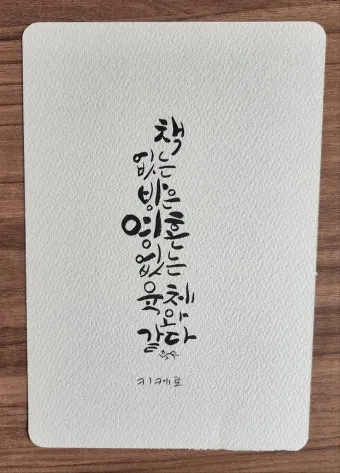 책
없는
방은
영혼
없는
육체
와
같다
키케로